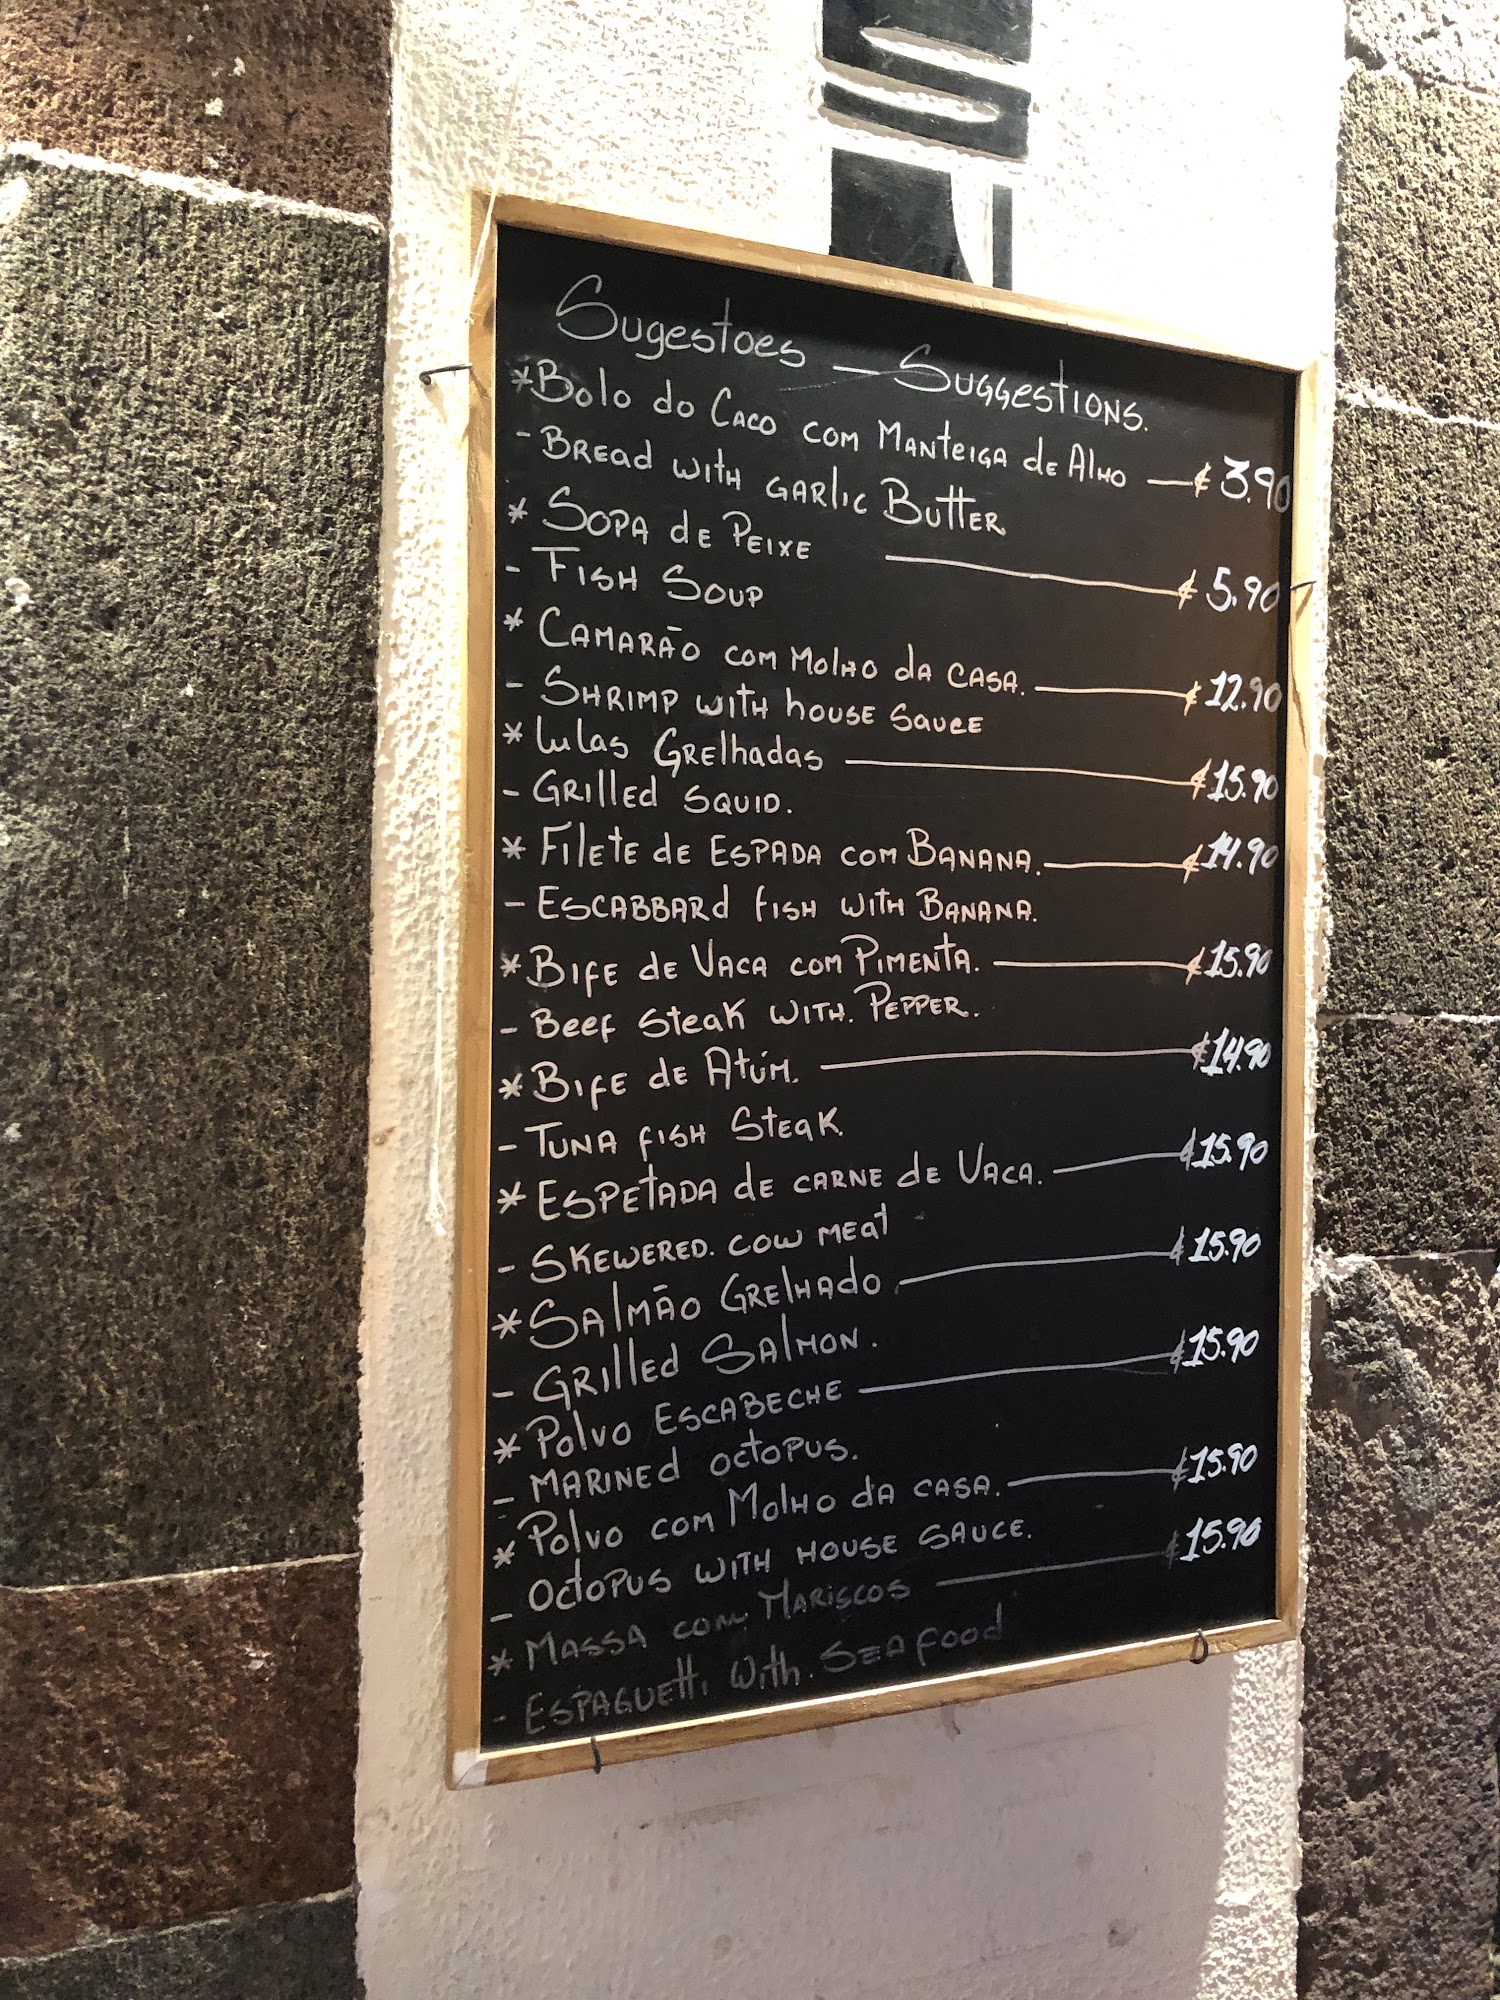 Sugestoes — Suggestions.
* Bolo do Caco com Manteiga de Alho — € 3.90
- Bread with garlic Butter
* Sopa de Peixe — € 5.90
- Fish Soup
* Camarão com Molho da casa. — € 12.90
- Shrimp with house sauce
* Lulas Grelhadas — € 15.90
- Grilled squid.
* Filete de Espada com Banana. — € 14.90
- Escabbard fish with Banana.
* Bife de Vaca com Pimenta. — € 15.90
- Beef steak with. Pepper.
* Bife de Atúm. — € 14.90
- Tuna fish Steak.
* Espetada de carne de Vaca. — € 15.90
- Skewered. cow meat
* Salmão Grelhado — € 15.90
- Grilled Salmon.
* Polvo Escabeche — € 15.90
- Marined octopus.
* Polvo com Molho da casa. — € 15.90
- Octopus with house sauce.
* Massa com Mariscos — € 15.90
- Espaguetti with. Seafood